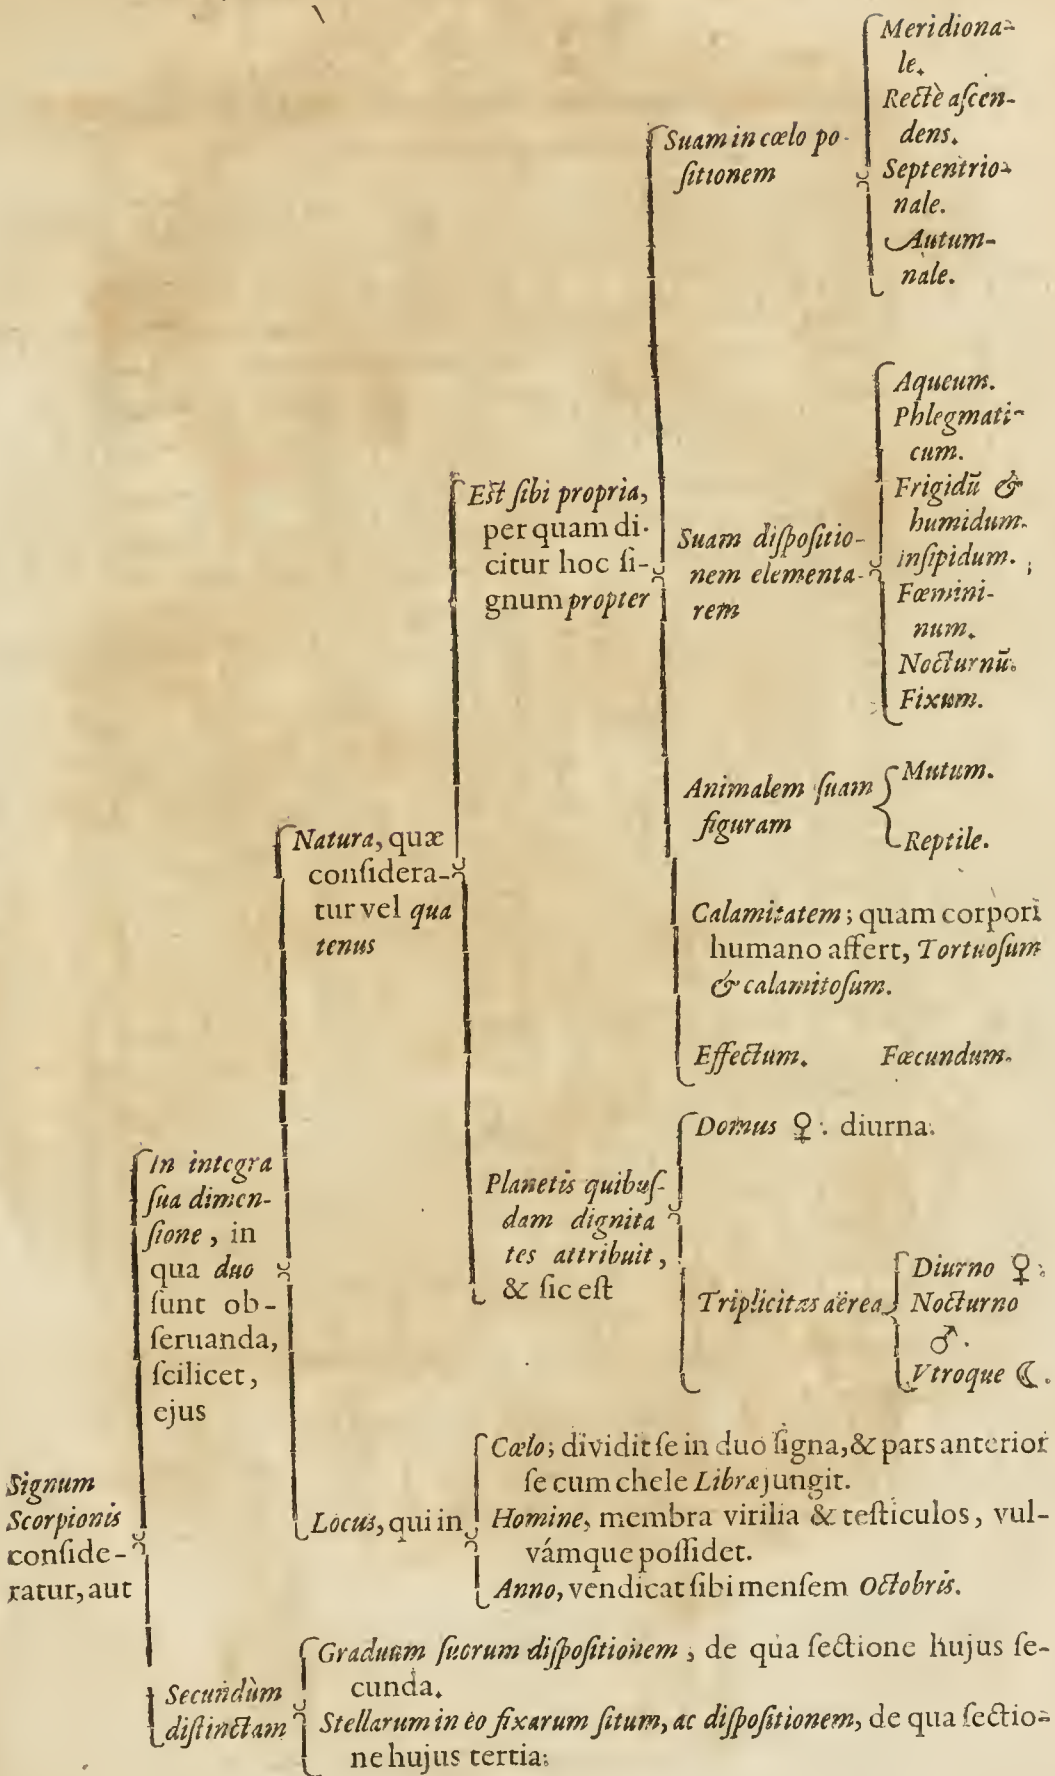 Signum
Scorpionis
conſide-
ratur, aut
In integra
ſua dimen-
ſione, in
qua duo
ſunt ob-
ſeruanda,
ſcilicet,
ejus
Natura, quæ
conſidera-
tur vel qua
tenus
Eſt ſibi propria,
per quam di-
citur hoc ſi-
gnum propter
Suam in cœlo po-
ſitionem
Meridiona-
le.
Rectè aſcen-
dens.
Septentrio-
nale.
Autum-
nale.
Suam diſpoſitio-
nem elementa-
rem
Aqueum.
Phlegmati-
cum.
Frigidū &
humidum.
inſipidum.
Fœmini-
num.
Nocturnū.
Fixum.
Animalem ſuam
figuram
Mutum.
Reptile.
Calamitatem; quam corpori
humano affert, Tortuoſum
& calamitoſum.
Effectum. Fœcundum.
Planetis quibuſ-
dam dignita
tes attribuit,
& ſic eſt
Domus ♀. diurna.
Triplicitas aërea
Diurno ♀.
Nocturno
♂.
Vtroque ☾.
Locus, qui in
Cælo; dividit ſe in duo ſigna, & pars anterior
ſe cum chele Libræ jungit.
Homine, membra virilia & teſticulos, vul-
vámque poſſidet.
Anno, vendicat ſibi menſem Octobris.
Secundùm
diſtinctam
Graduum ſuorum diſpoſitionem, de qua ſectione hujus ſe-
cunda.
Stellarum in eo fixarum ſitum, ac diſpoſitionem, de qua ſectio-
ne hujus tertia.